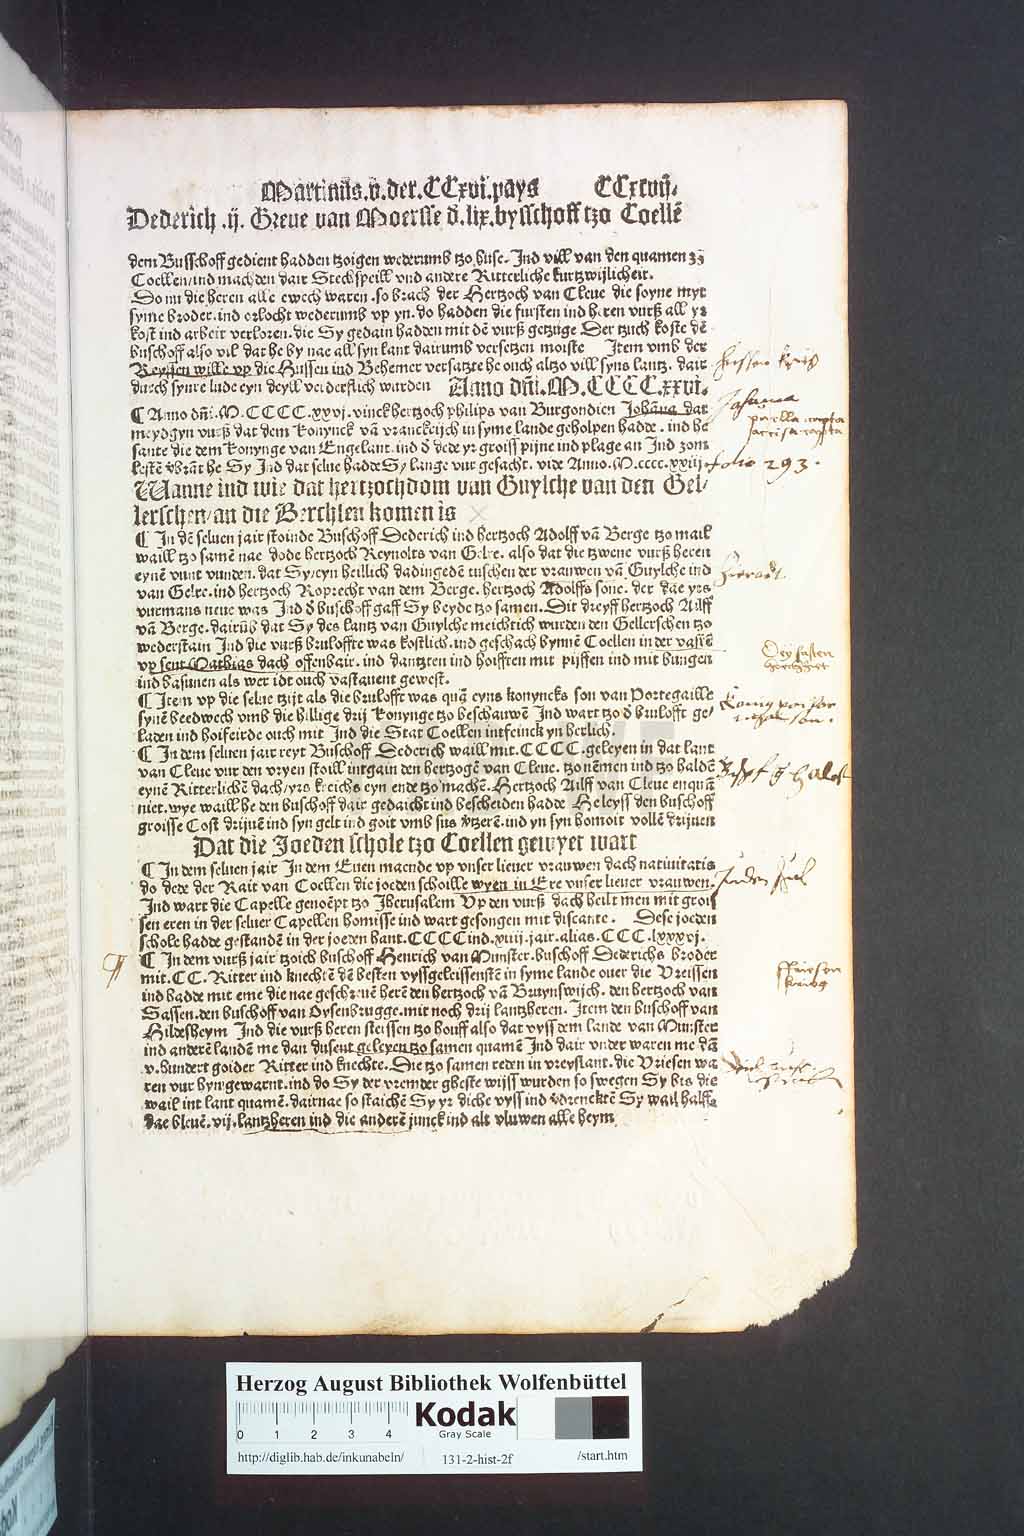 Martinus.v̄.der.CCxvi.pays CCxcvij.
Dederich .ij. Greue van Moersse d̄.lix.bysschoff tzo Coellē
dem Busschoff gedient hadden tzoigen wederumb tzo huse. Ind vill van den quamen zō
Coellen/ind machden dair Stechspeill vnd andere Ritterliche kurtzwijlicheit.
Do nu die heren alle ewech waren .so brach der Hertzoch van Cleue die soyne myt
syme broder.ind orlocht wederumb vp yn. do hadden die fursten ind heren vurß all yr
kost ind arbeit verloren.die Sy gedain hadden mit dē vurß getzuge Der tzuch koste dē
buschoff also vil dat he by nae all syn lant dairumb versetzen moiste Item vmb der
Reyssen wille vp die Hussen ind Behemer versatzte he ouch altzo vill syns lantz. dair
durch synre lude eyn deyll verderflich wurden Anno dn̄i.M.CCCC.xxvi.
¶ Anno dn̄i.M.CCCC.xxvj.vinck hertzoch philips van Burgondien Johāna dat
meydgyn vurß dat dem Konynck vā vranckrijch in syme lande geholpen hadde. ind he
sante die dem konynge van Engelant.ind d̄ dede yr groiss pijne ind plage an Ind zom
lestē v̄brāt he Sy Ind dat selue hadde Sy lange vur gesacht. vide Anno.M.cccc.xxiij
Wanne ind wie dat hertzochdom van Guylche van den Gel/
lerschen/an die Berchlen komen is
¶ In dē seluen jair stoinde Buschoff Dederich ind hertzoch Adolff vā Berge tzo mail
waill tzo samē nae dode hertzoch Reynolts van Gelre. also dat die tzwene vurß heren
eynē vunt vunden. dat Sy/eyn heillich dadingedē tuschen der vrauwen vā Guylche ind
van Gelre.ind hertzoch Roprecht van dem Berge. hertzoch Adolffs sone. der dae yrs
vurmans neue was Ind d̄ buschoff gaff Sy beyde tzo samen. Dit dreyff hertzoch Ailff
vā Berge.dairūb dat Sy des lantz van Guylche meichtich wurden den Gellerschen tzo
wederstain Ind die vurß bruloffte was kostlich.ind geschach bynnē Coellen in der vastē
vp sent Mathias dach offenbair. ind dantzten ind hoiffren mit pijffen ind mit bungen
ind basunen als wer idt ouch vastauent gewest.
¶ Item vp die selue tzijt als die brulofft was quā eyns konyncks son van Portegaille
synē beedwech vmb die hillige drij konynge tzo beschauwē Ind wart tzo d̄ brulofft ge/
laden ind hoifeirde ouch mit Ind die Stat Coellen intfeinck yn herlich.
¶ In dem seluen jair reyt Buschoff Dederich waill mit.CCCC.geleyen in dat lant
van Cleue vur den vryen stoill intgain den hertzogē van Cleue. tzo nemen ind tzo haldē
eynē Ritterlichē dach/yrs kreichs eyn ende tzo machē. Hertzoch Ailff van Cleue enquā
niet.wye waill he den buschoff dair gedaicht ind bescheiden hadde Heleyss den buschoff
groisse Cost drijuē ind syn gelt ind goit vmb sus v̄tzerē.ind yn syn homoit vollē drijuen
Dat die Joeden schole tzo Coellen gewyet wart
¶ In dem seluen jair In dem Euen maende vp vnser lieuer vrauwen dach natiuitatis
do dede der Rait van Coellen die joeden schoille wyen in Ere vnser lieuer vrauwen.
Ind wart die Capelle genoēpt tzo Jherusalem Vp den vurß dach heilt men mit grois
sen eren in der seluer Capellen homisse ind wart gesongen mit discante. Dese joeden
schole hadde gestandē in der joeden hant.CCCC ind.xiiij.jair.alias.CCC.lxxxvj.
¶ In dem vurß jair tzoich buschoff Henrich van Munster.buschoff Dederichs broder
mit.CC. Ritter ind knechtē dē besten vyssgeleissenstē in syme lande ouer die Vreissen
ind hadde mit eme die nae geschreuē herē den hertzoch vā Bruynswijch. den hertzoch van
Sassen.den buschoff van Oysenbrugge.mit noch drij lantzheren. Item den buschoff van
Hildesheym Ind die vurß heren steissen tzo houff also dat vyss dem lande van Munster
ind anderē landē me dan dusent geleyen tzo samen quamē Ind dair vnder waren me dā
v.hundert goider Ritter ind knechte. Die tzo samen reden in vreyslant. die Vriesen wa
ren vur hyn gewarnt.ind do Sy der vremder gheste wijss wurden so swegen Sy bis die
wail int lant quamē. dairnae so staichē Sy yr diche vyss ind v̄drenktē Sy wail halff.
dae bleuē.vij.lantzheren ind die anderē junck ind alt vluwen alle heym
Johanna
puella capta
folio 293.
Herzog August Bibliothek Wolfenbüttel
0 1 2 3 4
Kodak
Gray Scale
http://diglib.hab.de/inkunabeln/ 131-2-hist-2f /start.htm